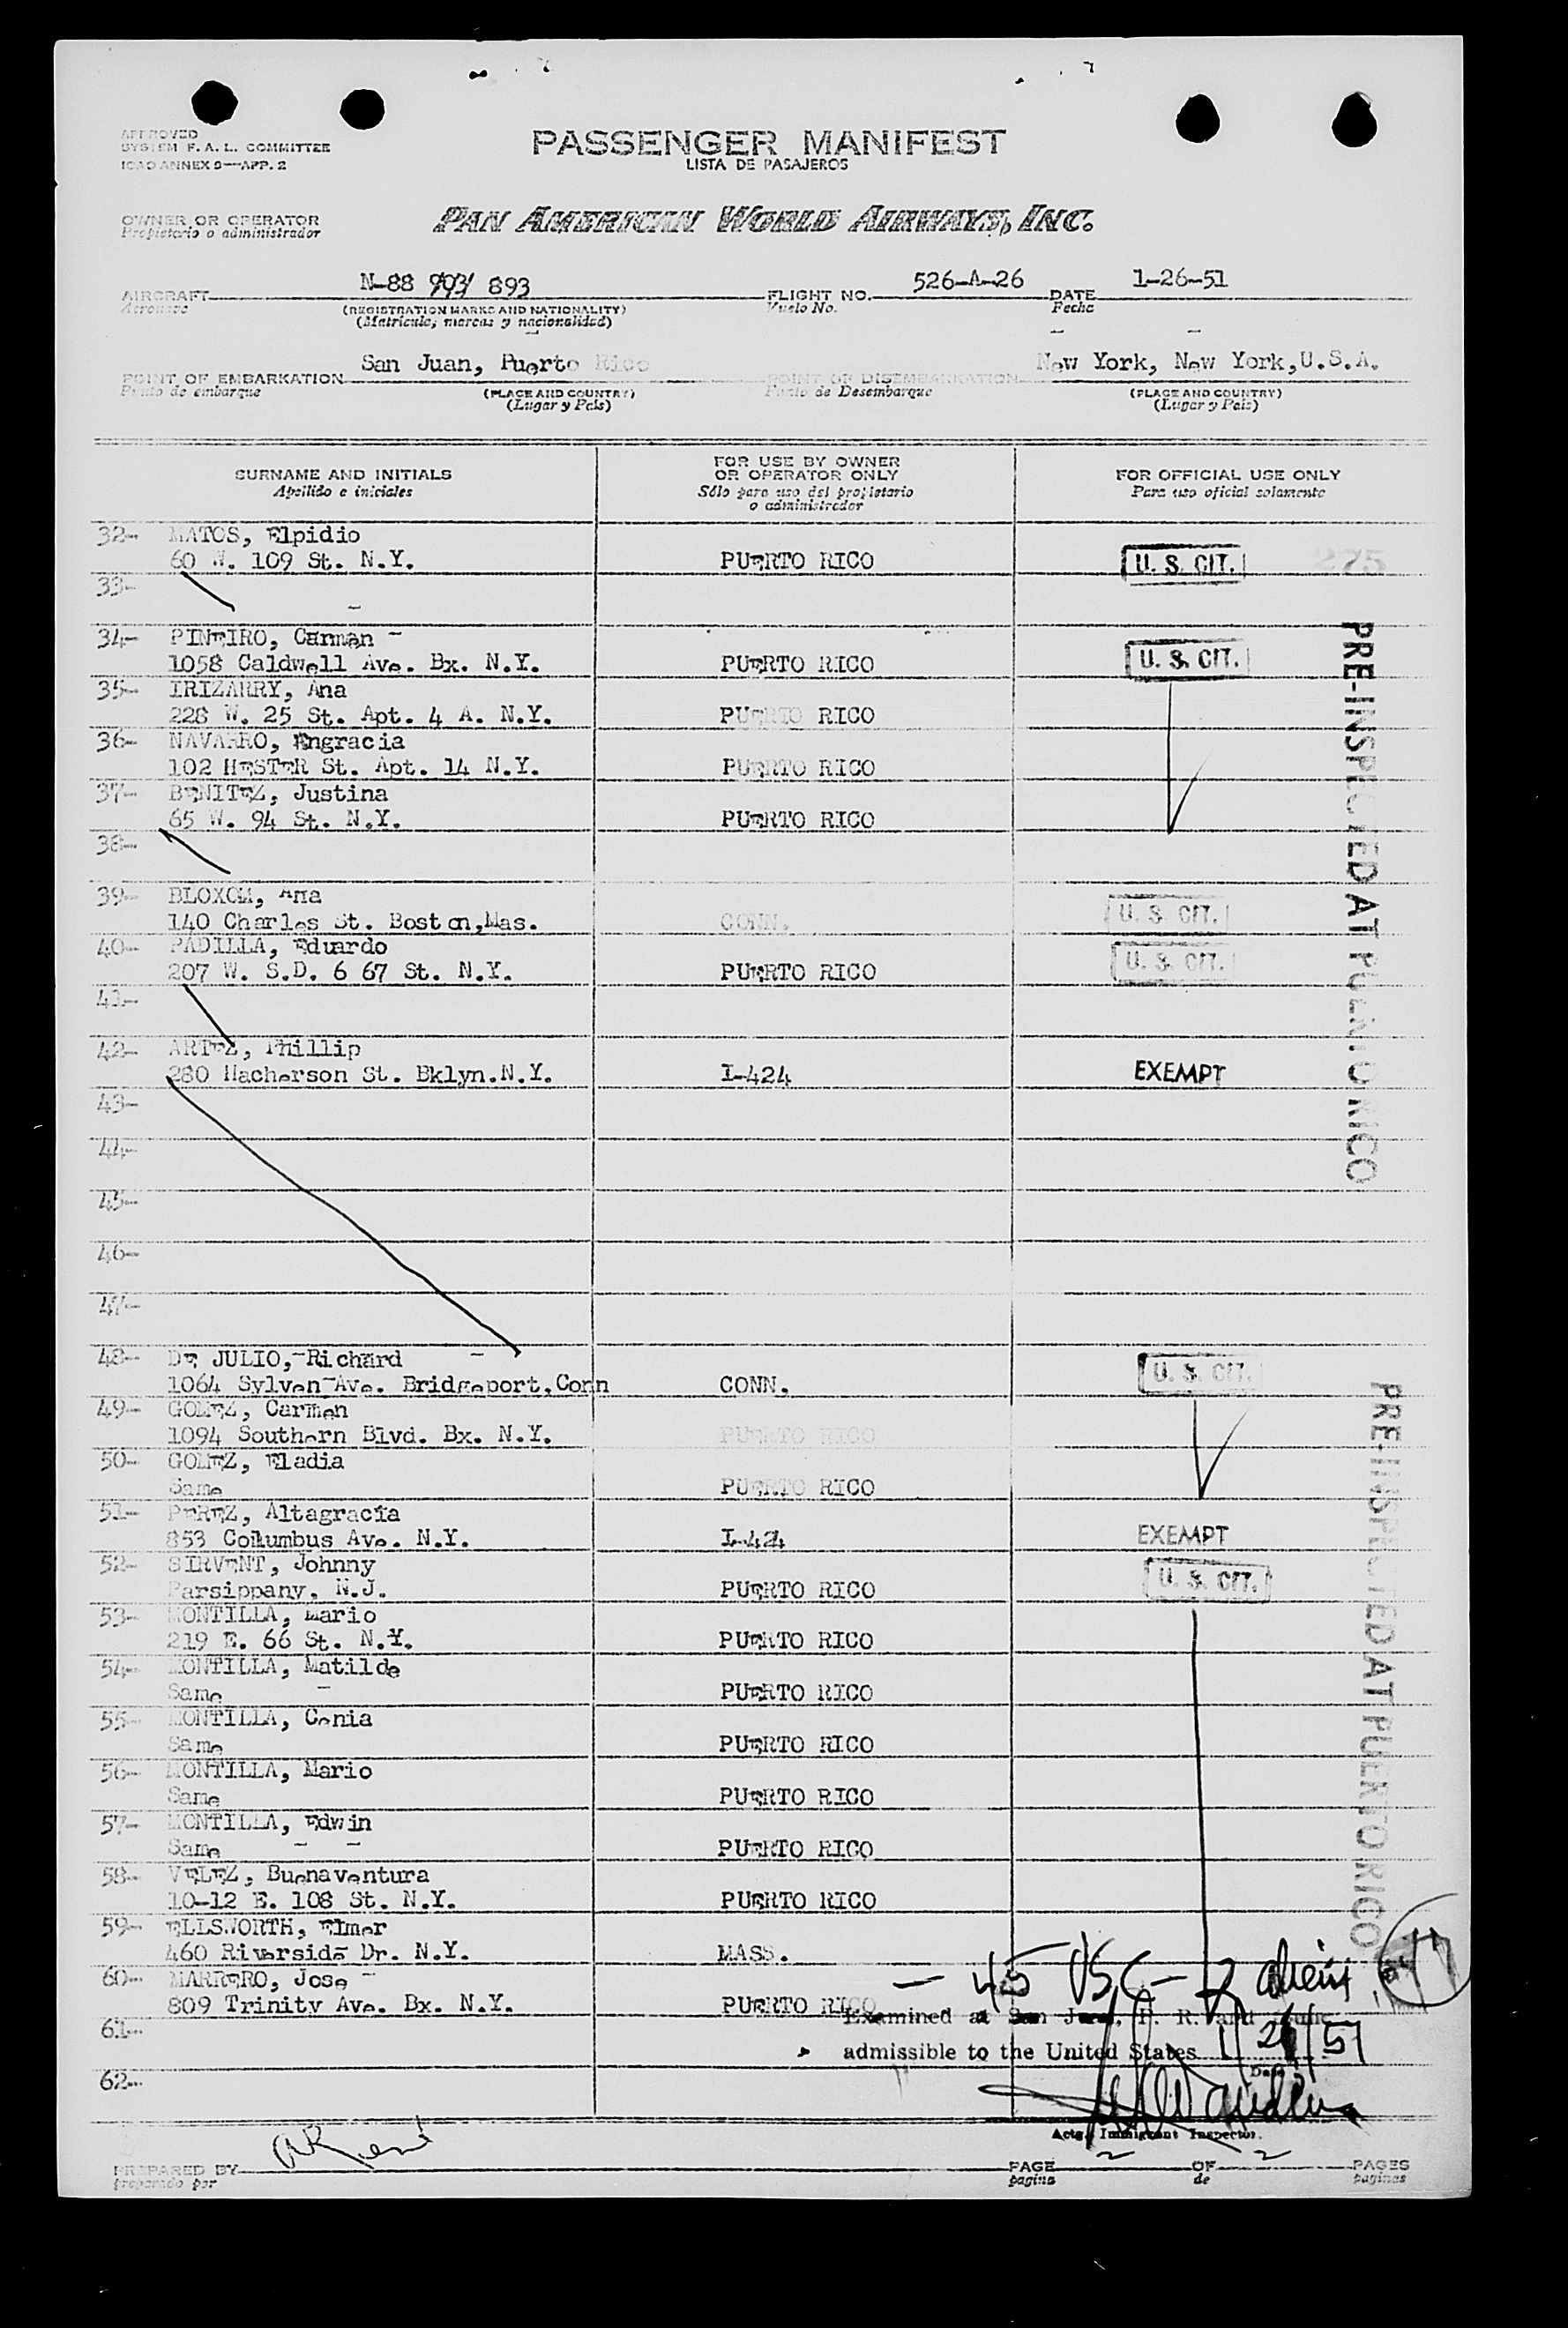 APPROVED
SYSTEM F. A. L. COMMITTEE
ICAO ANNEX 9—APP. 2
PASSENGER MANIFEST
LISTA DE PASAJEROS
OWNER OR OPERATOR
Propietario o administrador
PAN AMERICAN WORLD AIRWAYS, INC.
AIRCRAFT N-88 893
Aeronave
(REGISTRATION MARKS AND NATIONALITY)
(Matricula, marcas y nacionalidad)
FLIGHT NO. 526-A-26
Vuelo No.
DATE 1-26-51
Fecha
POINT OF EMBARKATION San Juan, Puerto Rico
Punto de embarque
(PLACE AND COUNTRY)
(Lugar y Pais)
POINT OF DISEMBARKATION New York, New York,U.S.A.
Punto de Desembarque
(PLACE AND COUNTRY)
(Lugar y Pais)
SURNAME AND INITIALS
Apellido e iniciales
FOR USE BY OWNER
OR OPERATOR ONLY
Sólo para uso del propietario
o administrador
FOR OFFICIAL USE ONLY
Para uso oficial solamente
32- MATOS, Elpidio
60 W. 109 St. N.Y. PUERTO RICO U. S. CIT. 275
33-
34- PINEIRO, Carmen
1058 Caldwell Ave. Bx. N.Y. PUERTO RICO U. S. CIT.
35- IRIZARRY, Ana
228 W. 25 St. Apt. 4 A. N.Y. PUERTO RICO
36- NAVARRO, Engracia
102 HESTER St. Apt. 14 N.Y. PUERTO RICO
37- BENITEZ, Justina
65 W. 94 St. N.Y. PUERTO RICO
38-
39- BLOXOM, Ana
140 Charles St. Boston,Mas. CONN. U. S. CIT.
40- PADILLA, Eduardo
207 W. S.D. 6 67 St. N.Y. PUERTO RICO U. S. CIT.
41-
42- ARTEZ, Phillip
280 Hacherson St. Bklyn.N.Y. I-424 EXEMPT
43-
44-
45-
46-
47-
PRE-INSPECTED AT PUERTO RICO
48- DE JULIO, Richard
1064 Sylven Ave. Bridgeport,Conn CONN. U. S. CIT.
49- GOMEZ, Carmen
1094 Southern Blvd. Bx. N.Y. PUERTO RICO
50- GOMEZ, Eladia
Same PUERTO RICO
51- PEREZ, Altagracia
853 Columbus Ave. N.Y. I-424 EXEMPT
52- SIRVENT, Johnny
Parsippany, N.J. PUERTO RICO U. S. CIT.
53- MONTILLA, Mario
219 E. 66 St. N.Y. PUERTO RICO
54- MONTILLA, Matilde
Same PUERTO RICO
55- MONTILLA, Cenia
Same PUERTO RICO
56- MONTILLA, Mario
Same PUERTO RICO
57- MONTILLA, Edwin
Same PUERTO RICO
58- VELEZ, Buenaventura
10-12 E. 108 St. N.Y. PUERTO RICO
59- ELLSWORTH, Elmer
460 Riverside Dr. N.Y. MASS.
60- MARRERO, Jose
809 Trinity Ave. Bx. N.Y. PUERTO RICO
61-
62-
PRE-INSPECTED AT PUERTO RICO
— 45 USC — 2 aliens
Examined at San Juan, P. R. and
admissible to the United States 1/26/51
Date
Actg. Immigrant Inspector.
PREPARED BY
preparado por
PAGE 2 OF 2 PAGES
pagina de paginas